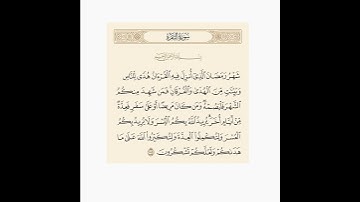 سورة البقرة
بسم الله الرحمن الرحيم
شَهْرُ رَمَضَانَ ٱلَّذِىٓ أُنزِلَ فِيهِ ٱلْقُرْءَانُ هُدًى لِّلنَّاسِ
وَبَيِّنَٰتٍ مِّنَ ٱلْهُدَىٰ وَٱلْفُرْقَانِ فَمَن شَهِدَ مِنكُمُ
ٱلشَّهْرَ فَلْيَصُمْهُ وَمَن كَانَ مَرِيضًا أَوْ عَلَىٰ سَفَرٍ فَعِدَّةٌ
مِّنْ أَيَّامٍ أُخَرَ يُرِيدُ ٱللَّهُ بِكُمُ ٱلْيُسْرَ وَلَا يُرِيدُ بِكُمُ
ٱلْعُسْرَ وَلِتُكْمِلُوا۟ ٱلْعِدَّةَ وَلِتُكَبِّرُوا۟ ٱللَّهَ عَلَىٰ مَا
هَدَىٰكُمْ وَلَعَلَّكُمْ تَشْكُرُونَ